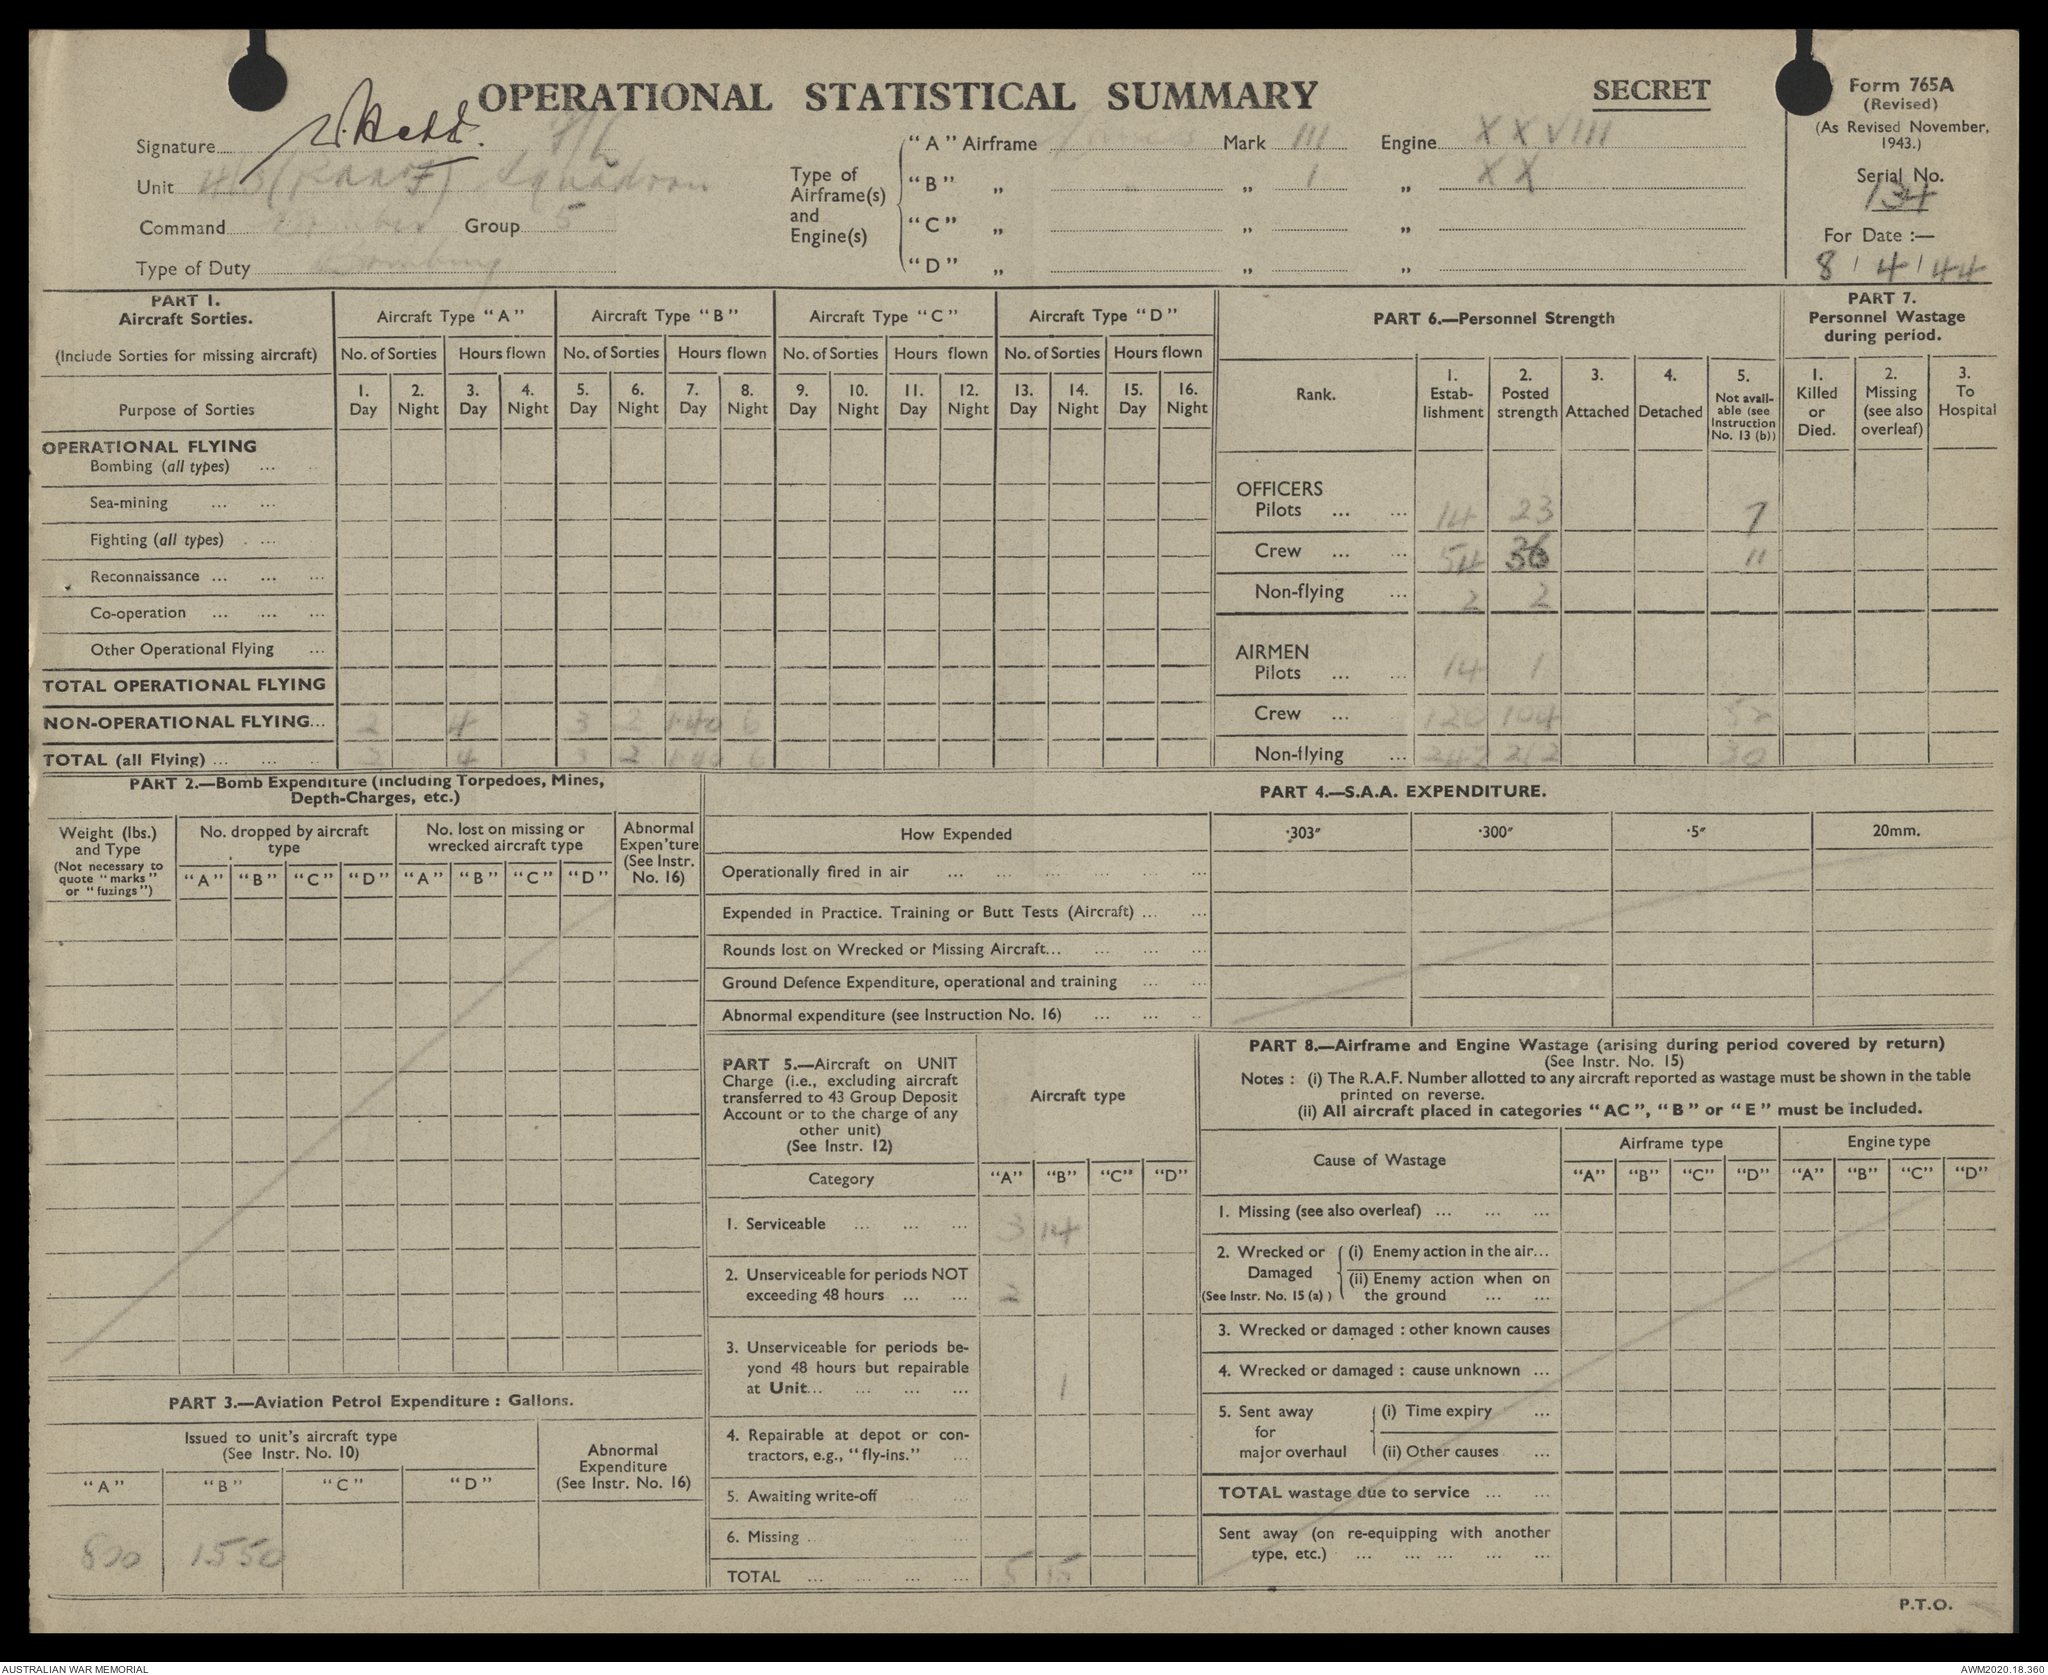 OPERATIONAL STATISTICAL SUMMARY
SECRET
Form 765A
(Revised)
(As Revised November, 1943.)
Serial No.
134
For Date :—
8 / 4 / 44
Signature F/L
Unit 463 (RAAF) Squadron
Command Bomber Group 5
Type of Duty Bombing
Type of Airframe(s) and Engine(s)
"A" Airframe Lancaster Mark III Engine XXVIII
"B" „ „ „ I „ XX
"C" „ „ „
"D" „ „ „
PART 1.
Aircraft Sorties.
(Include Sorties for missing aircraft)
Purpose of Sorties
Aircraft Type "A" Aircraft Type "B" Aircraft Type "C" Aircraft Type "D"
No. of Sorties Hours flown No. of Sorties Hours flown No. of Sorties Hours flown No. of Sorties Hours flown
1. Day 2. Night 3. Day 4. Night 5. Day 6. Night 7. Day 8. Night 9. Day 10. Night 11. Day 12. Night 13. Day 14. Night 15. Day 16. Night
OPERATIONAL FLYING
Bombing (all types) ...
Sea-mining ... ...
Fighting (all types) ...
Reconnaissance ... ... ...
Co-operation ... ... ...
Other Operational Flying ...
TOTAL OPERATIONAL FLYING
NON-OPERATIONAL FLYING... 2 4 3 2 1·40 6
TOTAL (all Flying) ... 2 4 3 2 1·40 6
PART 6.—Personnel Strength
Rank.
1. Estab-lishment
2. Posted strength
3. Attached
4. Detached
5. Not avail-able (see Instruction No. 13 (b))
OFFICERS
Pilots ... ... 14 23 7
Crew ... ... 54 36 11
Non-flying ... 2 2
AIRMEN
Pilots ... ... 14 1
Crew ... 120 104 52
Non-flying ... 242 262 30
PART 7.
Personnel Wastage during period.
1. Killed or Died.
2. Missing (see also overleaf)
3. To Hospital
PART 2.—Bomb Expenditure (including Torpedoes, Mines, Depth-Charges, etc.)
Weight (lbs.) and Type
(Not necessary to quote "marks" or "fuzings")
No. dropped by aircraft type
No. lost on missing or wrecked aircraft type
Abnormal Expen'ture (See Instr. No. 16)
"A" "B" "C" "D" "A" "B" "C" "D"
PART 3.—Aviation Petrol Expenditure : Gallons.
Issued to unit's aircraft type
(See Instr. No. 10)
Abnormal Expenditure (See Instr. No. 16)
"A" "B" "C" "D"
800 1550
PART 4.—S.A.A. EXPENDITURE.
How Expended ·303" ·300" ·5" 20mm.
Operationally fired in air ... ... ... ... ...
Expended in Practice. Training or Butt Tests (Aircraft) ... ...
Rounds lost on Wrecked or Missing Aircraft... ... ... ...
Ground Defence Expenditure, operational and training ... ...
Abnormal expenditure (see Instruction No. 16) ... ... ..
PART 5.—Aircraft on UNIT Charge (i.e., excluding aircraft transferred to 43 Group Deposit Account or to the charge of any other unit)
(See Instr. 12)
Aircraft type
Category "A" "B" "C" "D"
1. Serviceable ... ... ... 3 14
2. Unserviceable for periods NOT exceeding 48 hours ... ... 2
3. Unserviceable for periods be-yond 48 hours but repairable at Unit... ... ... ... 1
4. Repairable at depot or con-tractors, e.g., "fly-ins." ...
5. Awaiting write-off ... ...
6. Missing ... ... ...
TOTAL ... ... ... ... 5 15
PART 8.—Airframe and Engine Wastage (arising during period covered by return)
(See Instr. No. 15)
Notes : (i) The R.A.F. Number allotted to any aircraft reported as wastage must be shown in the table printed on reverse.
(ii) All aircraft placed in categories "AC", "B" or "E" must be included.
Cause of Wastage
Airframe type Engine type
"A" "B" "C" "D" "A" "B" "C" "D"
1. Missing (see also overleaf) ... ... ...
2. Wrecked or Damaged (See Instr. No. 15 (a) )
(i) Enemy action in the air...
(ii) Enemy action when on the ground ... ...
3. Wrecked or damaged : other known causes
4. Wrecked or damaged : cause unknown ...
5. Sent away for major overhaul
(i) Time expiry ...
(ii) Other causes ...
TOTAL wastage due to service ... ...
Sent away (on re-equipping with another type, etc.) ... ... ... ... ...
P.T.O.
AUSTRALIAN WAR MEMORIAL
AWM2020.18.360